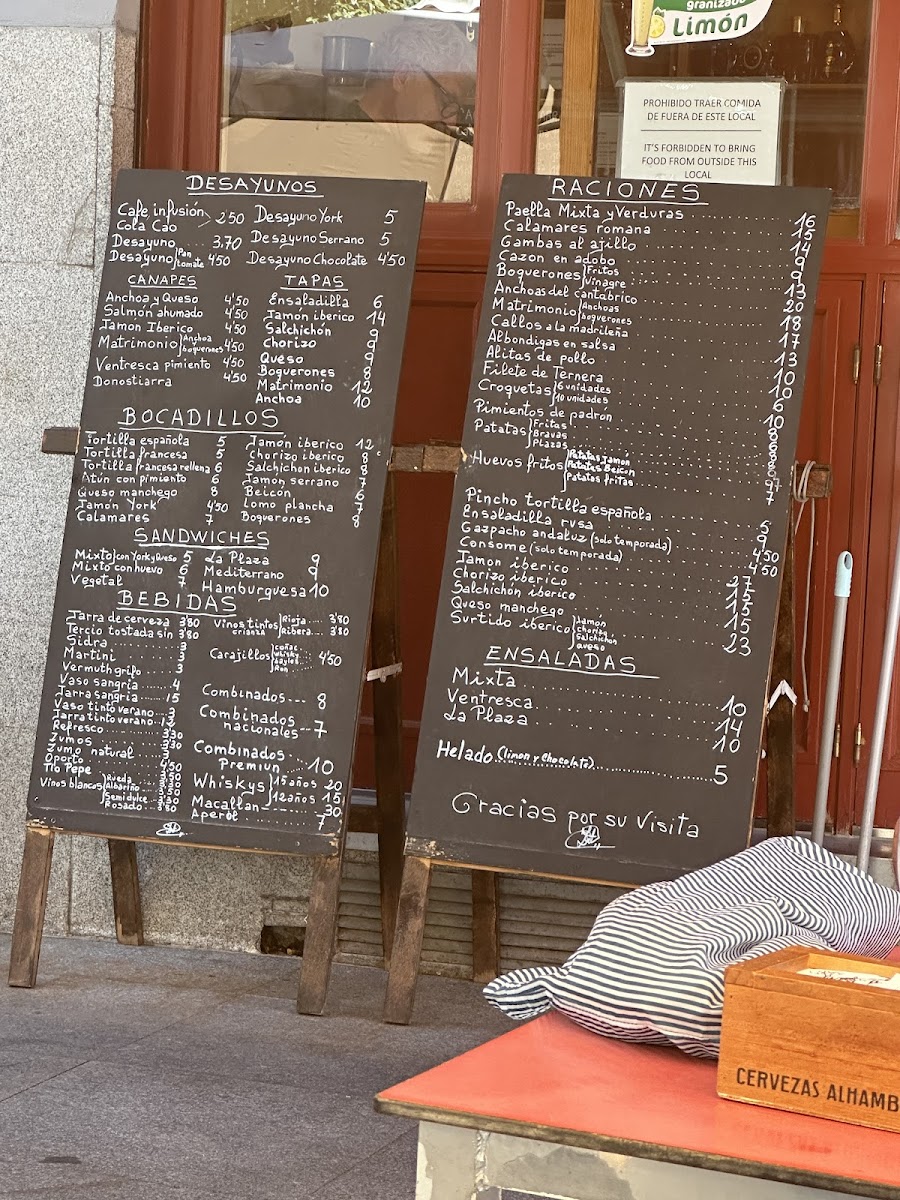 granizado
Limón
PROHIBIDO TRAER COMIDA
DE FUERA DE ESTE LOCAL
IT'S FORBIDDEN TO BRING
FOOD FROM OUTSIDE THIS
LOCAL
DESAYUNOS
Cafe infusión
Cola Cao 2'50
Desayuno ... 3.70
Desayuno Pan tomate 4'50
Desayuno York 5
Desayuno Serrano 5
Desayuno Chocolate 4'50
CANAPES
Anchoa y Queso 4'50
Salmón ahumado 4'50
Jamon Iberico 4'50
Matrimonio Anchoa boquerones 4'50
Ventresca pimiento 4'50
Donostiarra 4'50
TAPAS
Ensaladilla 6
Jamón iberico 14
Salchichón 9
Chorizo 9
Queso 9
Boquerones 8
Matrimonio 12
Anchoa 10
BOCADILLOS
Tortilla española 5
Tortilla francesa 5
Tortilla francesa rellena 6
Atún con pimiento 6
Queso manchego 8
Jamón York 4'50
Calamares 7
Jamon iberico 12
Chorizo iberico 8
Salchichon iberico 8
Jamon serrano 7
Beicon 6
Lomo plancha 7
Boquerones 8
SANDWICHES
Mixto con York y Queso 5
Mixto con huevo 6
Vegetal 7
La Plaza 9
Mediterrano 9
Hamburguesa 10
BEBIDAS
Jarra de cerveza 3'80
Tercio tostada sin 3'80
Sidra ... 3
Martini ... 3
Vermuth grifo ... 3
Vaso sangria ... 4
Jarra sangria ... 15
Vaso tinto verano ... 3
Jarra tinto verano
Refresco
Zumos
Zumo natural
Oporto
Tio Pepe
Vinos blancos Rueda
Albariño
Semi dulce
Rosado
Vinos tintos crianza Rioja ... 3'80
Ribera ... 3'80
Carajillos coñac
Ron 4'50
Combinados --- 8
Combinados
nacionales -- 7
Combinados
Premiun ... 10
Whiskys 15 años 20
12 años 15
Macallan ... 30
Aperol ... 7
RACIONES
Paella Mixta y Verduras 16
Calamares romana 15
Gambas al ajillo 14
Cazon en adobo 9
Boquerones Fritos 9
Vinagre 13
Anchoas del cantabrico 20
Matrimonio Anchoas boquerones 18
Callos a la madrileña 17
Albondigas en salsa 13
Alitas de pollo 10
Filete de Ternera 10
Croquetas 6 unidades 6
10 unidades 10
Pimientos de padrón 8
Patatas Fritas
Bravas
Plazas
Huevos fritos Patatas Jamon
Patatas Beicon
Patatas fritas
Pincho tortilla española 5
Ensaladilla rusa 9
Gazpacho andaluz (solo temporada) 4'50
Consome (solo temporada) 4'50
Jamon iberico
Chorizo iberico
Salchichon iberico 15
Queso manchego 15
Surtido iberico Jamon
chorizo
Salchichon
queso 23
ENSALADAS
Mixta 10
Ventresca 14
La Plaza 10
Helado (limon y chocolate) 5
Gracias por su visita
CERVEZAS ALHAMB